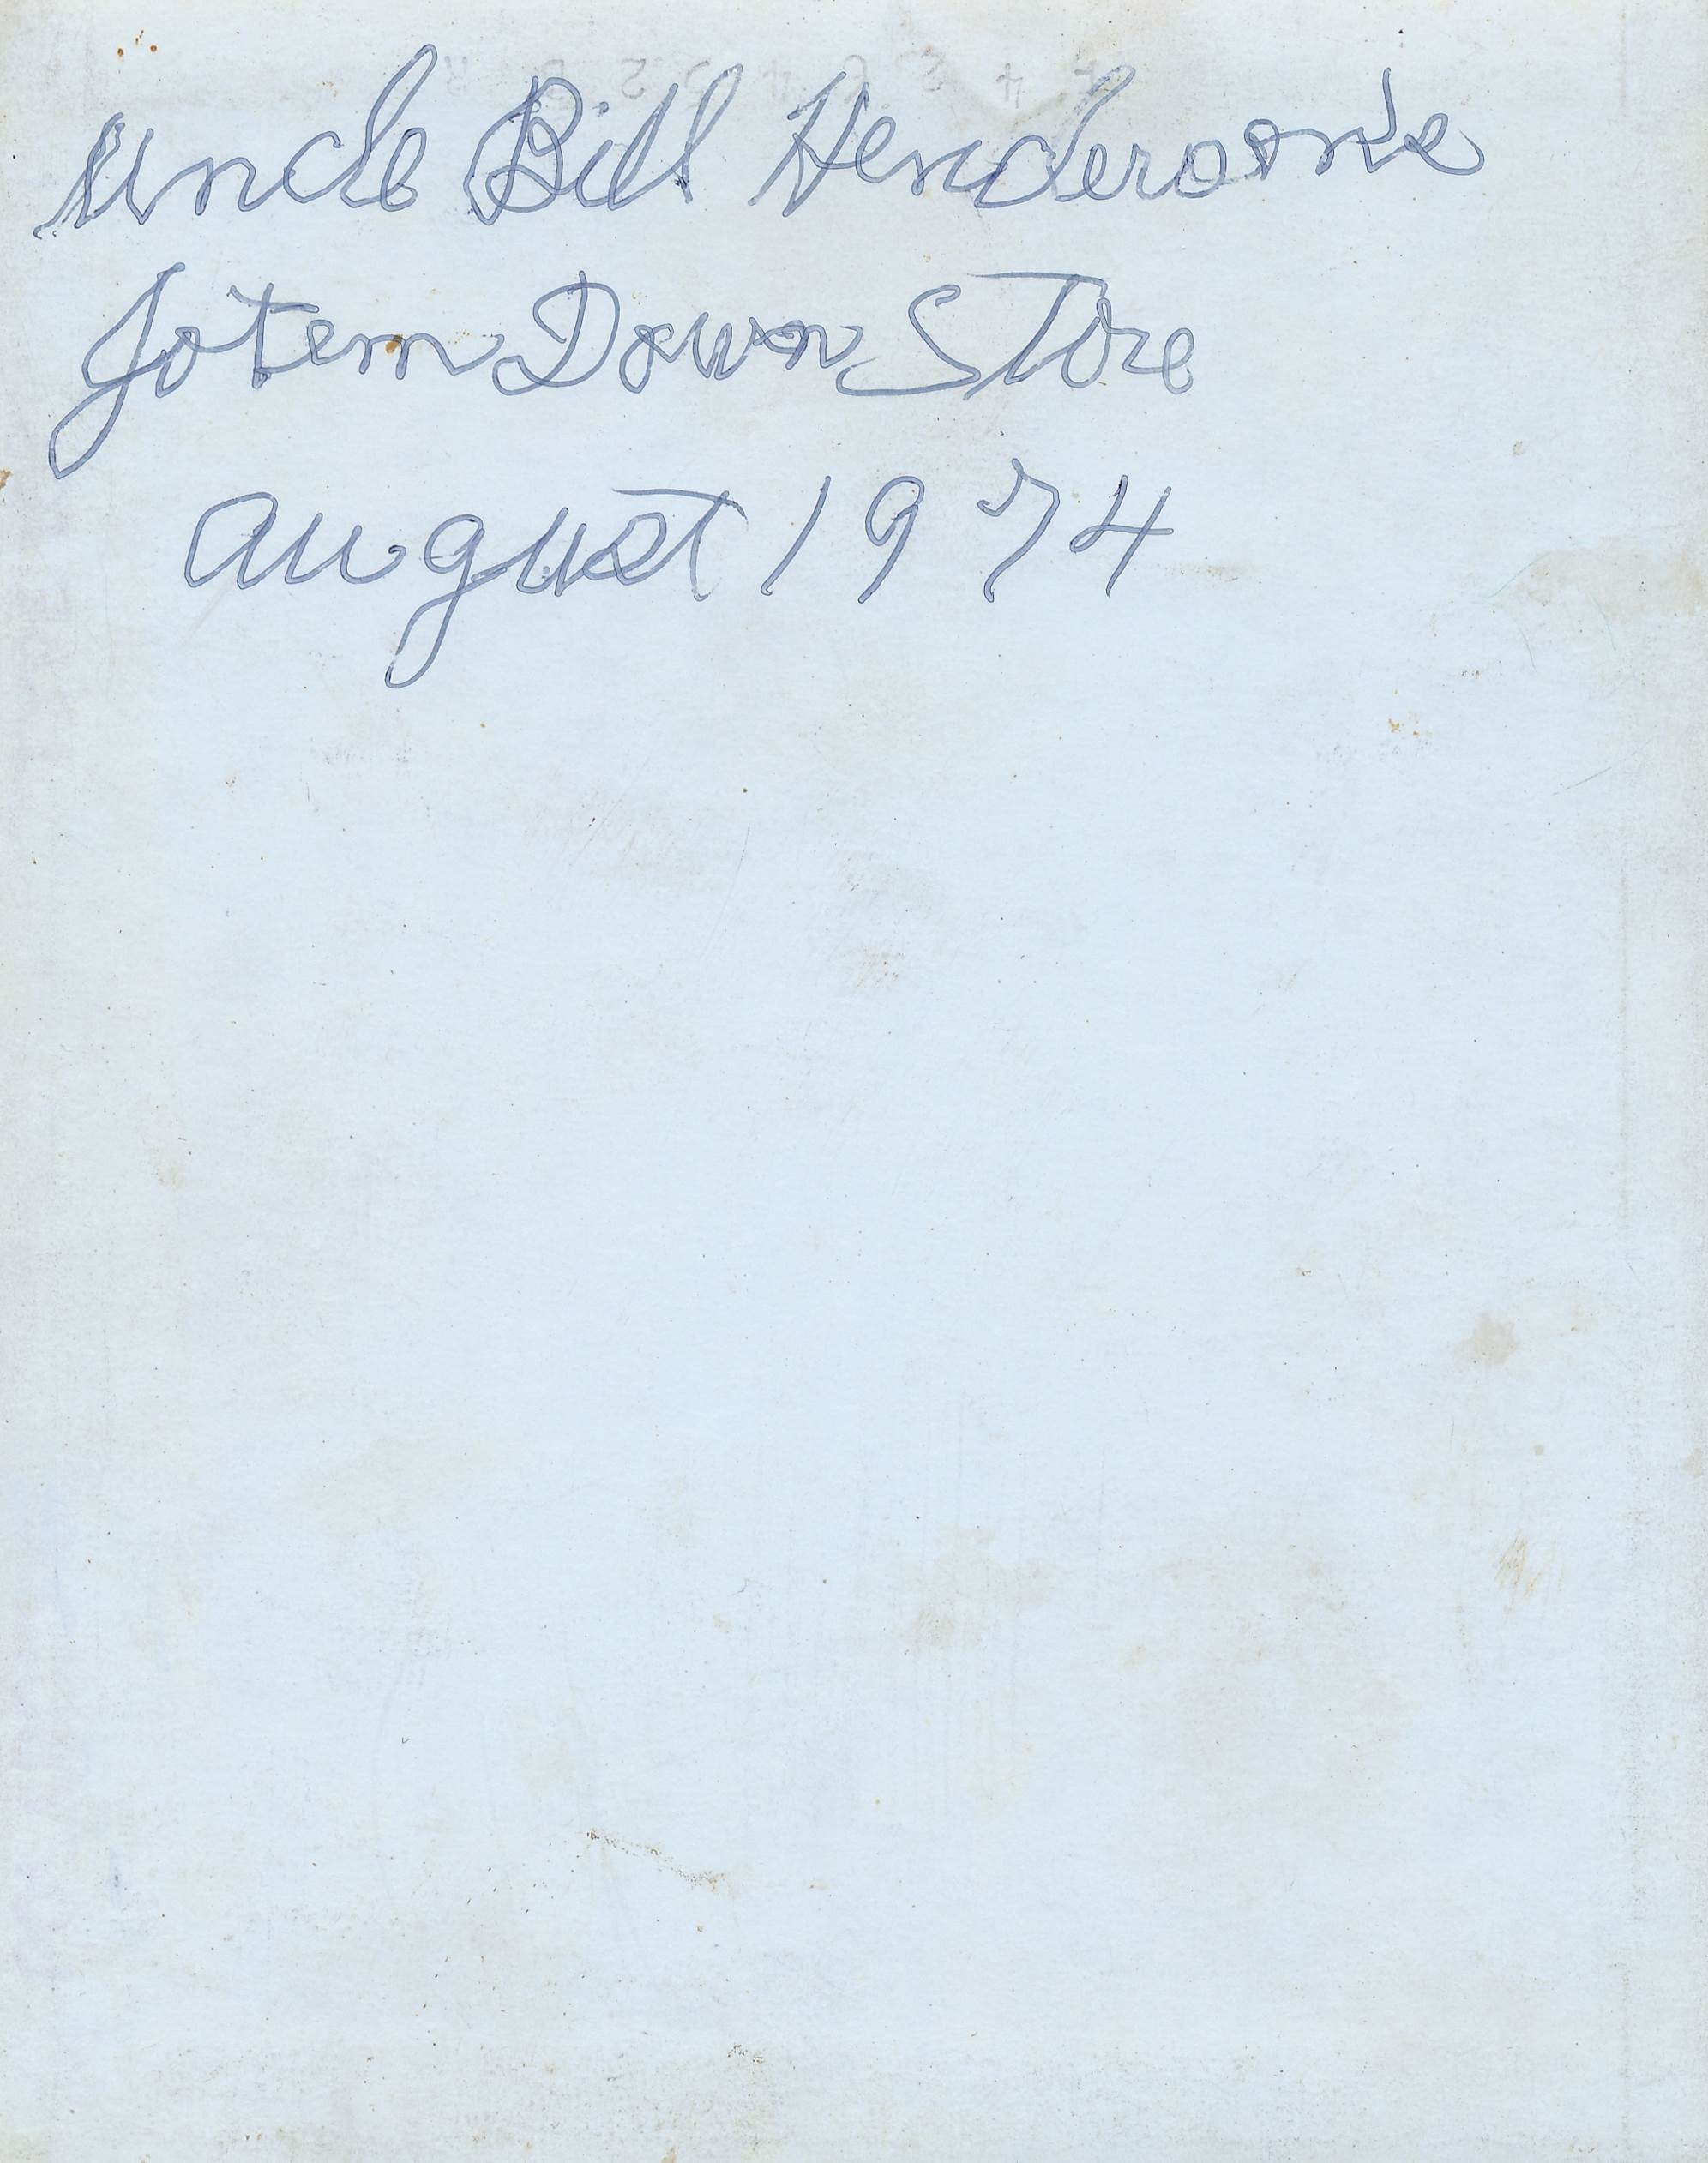 Uncle Bill Henderson's
Jotem Down Store
August 1974